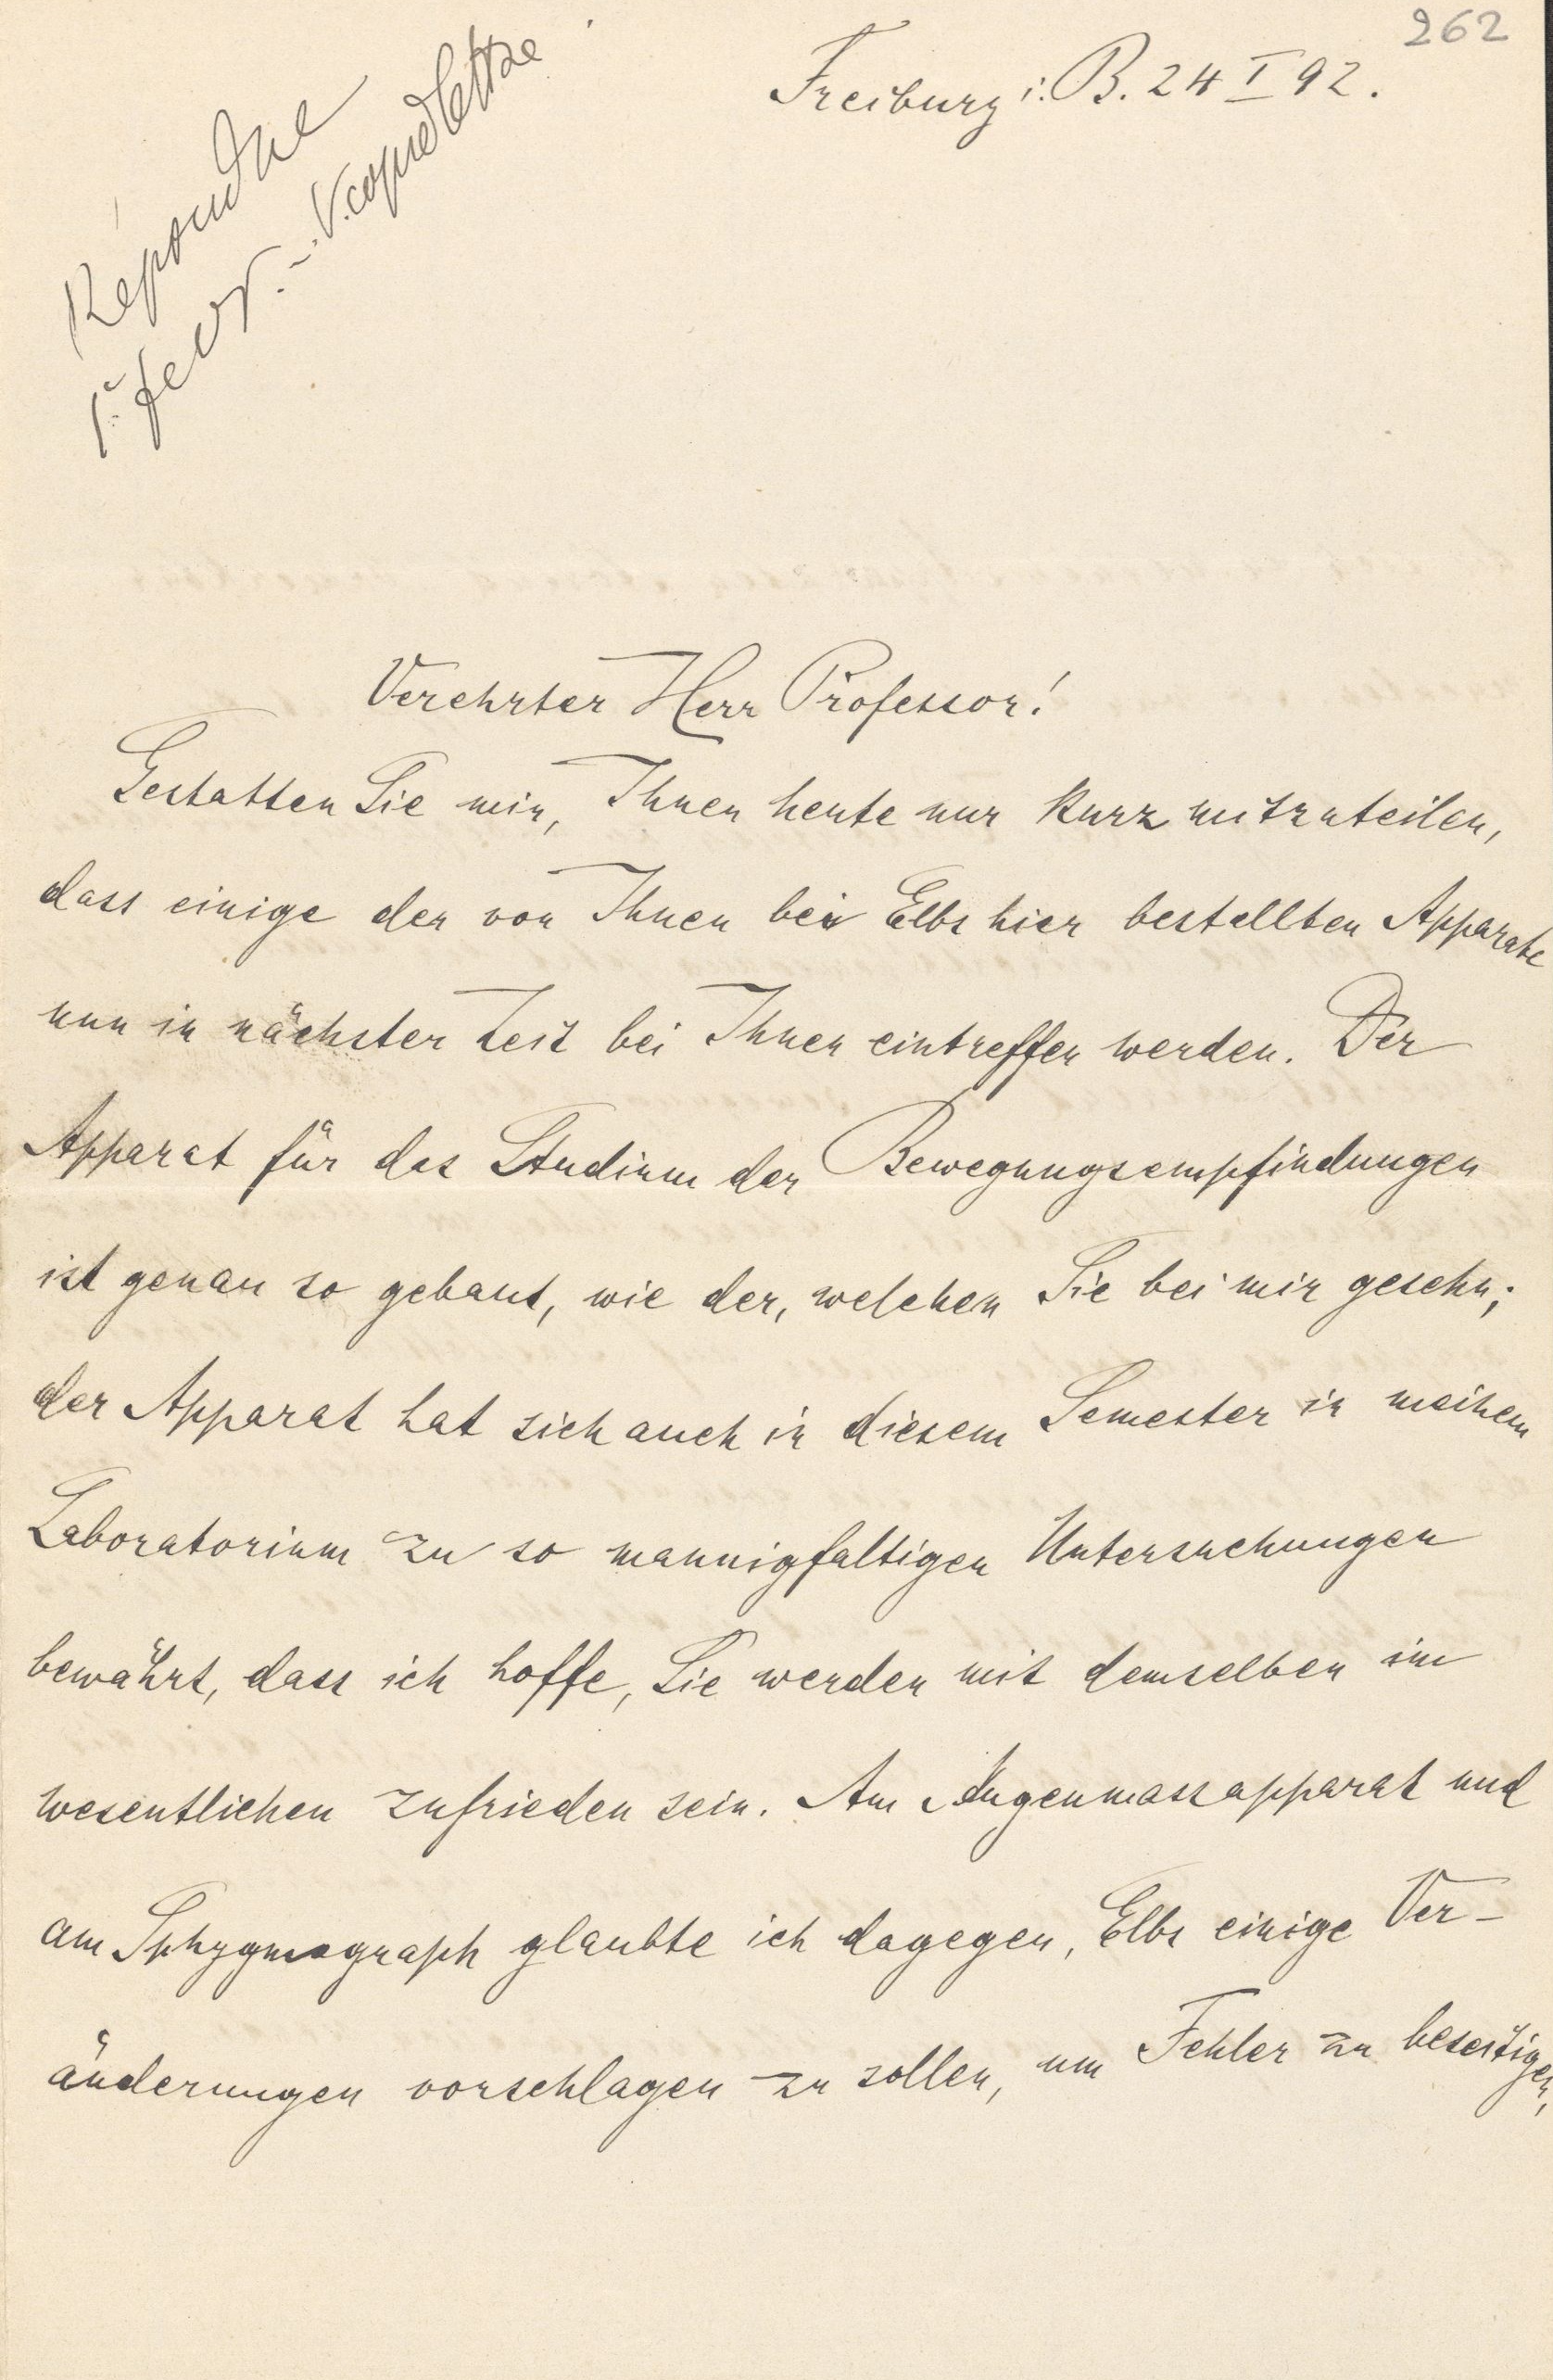 262
Freiburg i. B. 24 I 92.
Repondre
1er fevr. – V. copie de lettre
Verehrter Herr Professor!
Gestatten Sie mir, Ihnen heute nur kurz mitzuteilen,
dass einige der von Ihnen bei Elbs hier bestellten Apparate
nun in nächster Zeit bei Ihnen eintreffen werden. Der
Apparat für das Studium der Bewegungsempfindungen
ist genau so gebaut, wie der, welchen Sie bei mir gesehn;
der Apparat hat sich auch in diesem Semester in meinem
Laboratorium zu so mannigfaltigen Untersuchungen
bewährt, dass ich hoffe, Sie werden mit demselben im
wesentlichen zufrieden sein. Am Augenmassapparat und
am Sphygmograph glaubte ich dagegen, Elbs einige Ver-
änderungen vorschlagen zu sollen, um Fehler zu beseitigen,